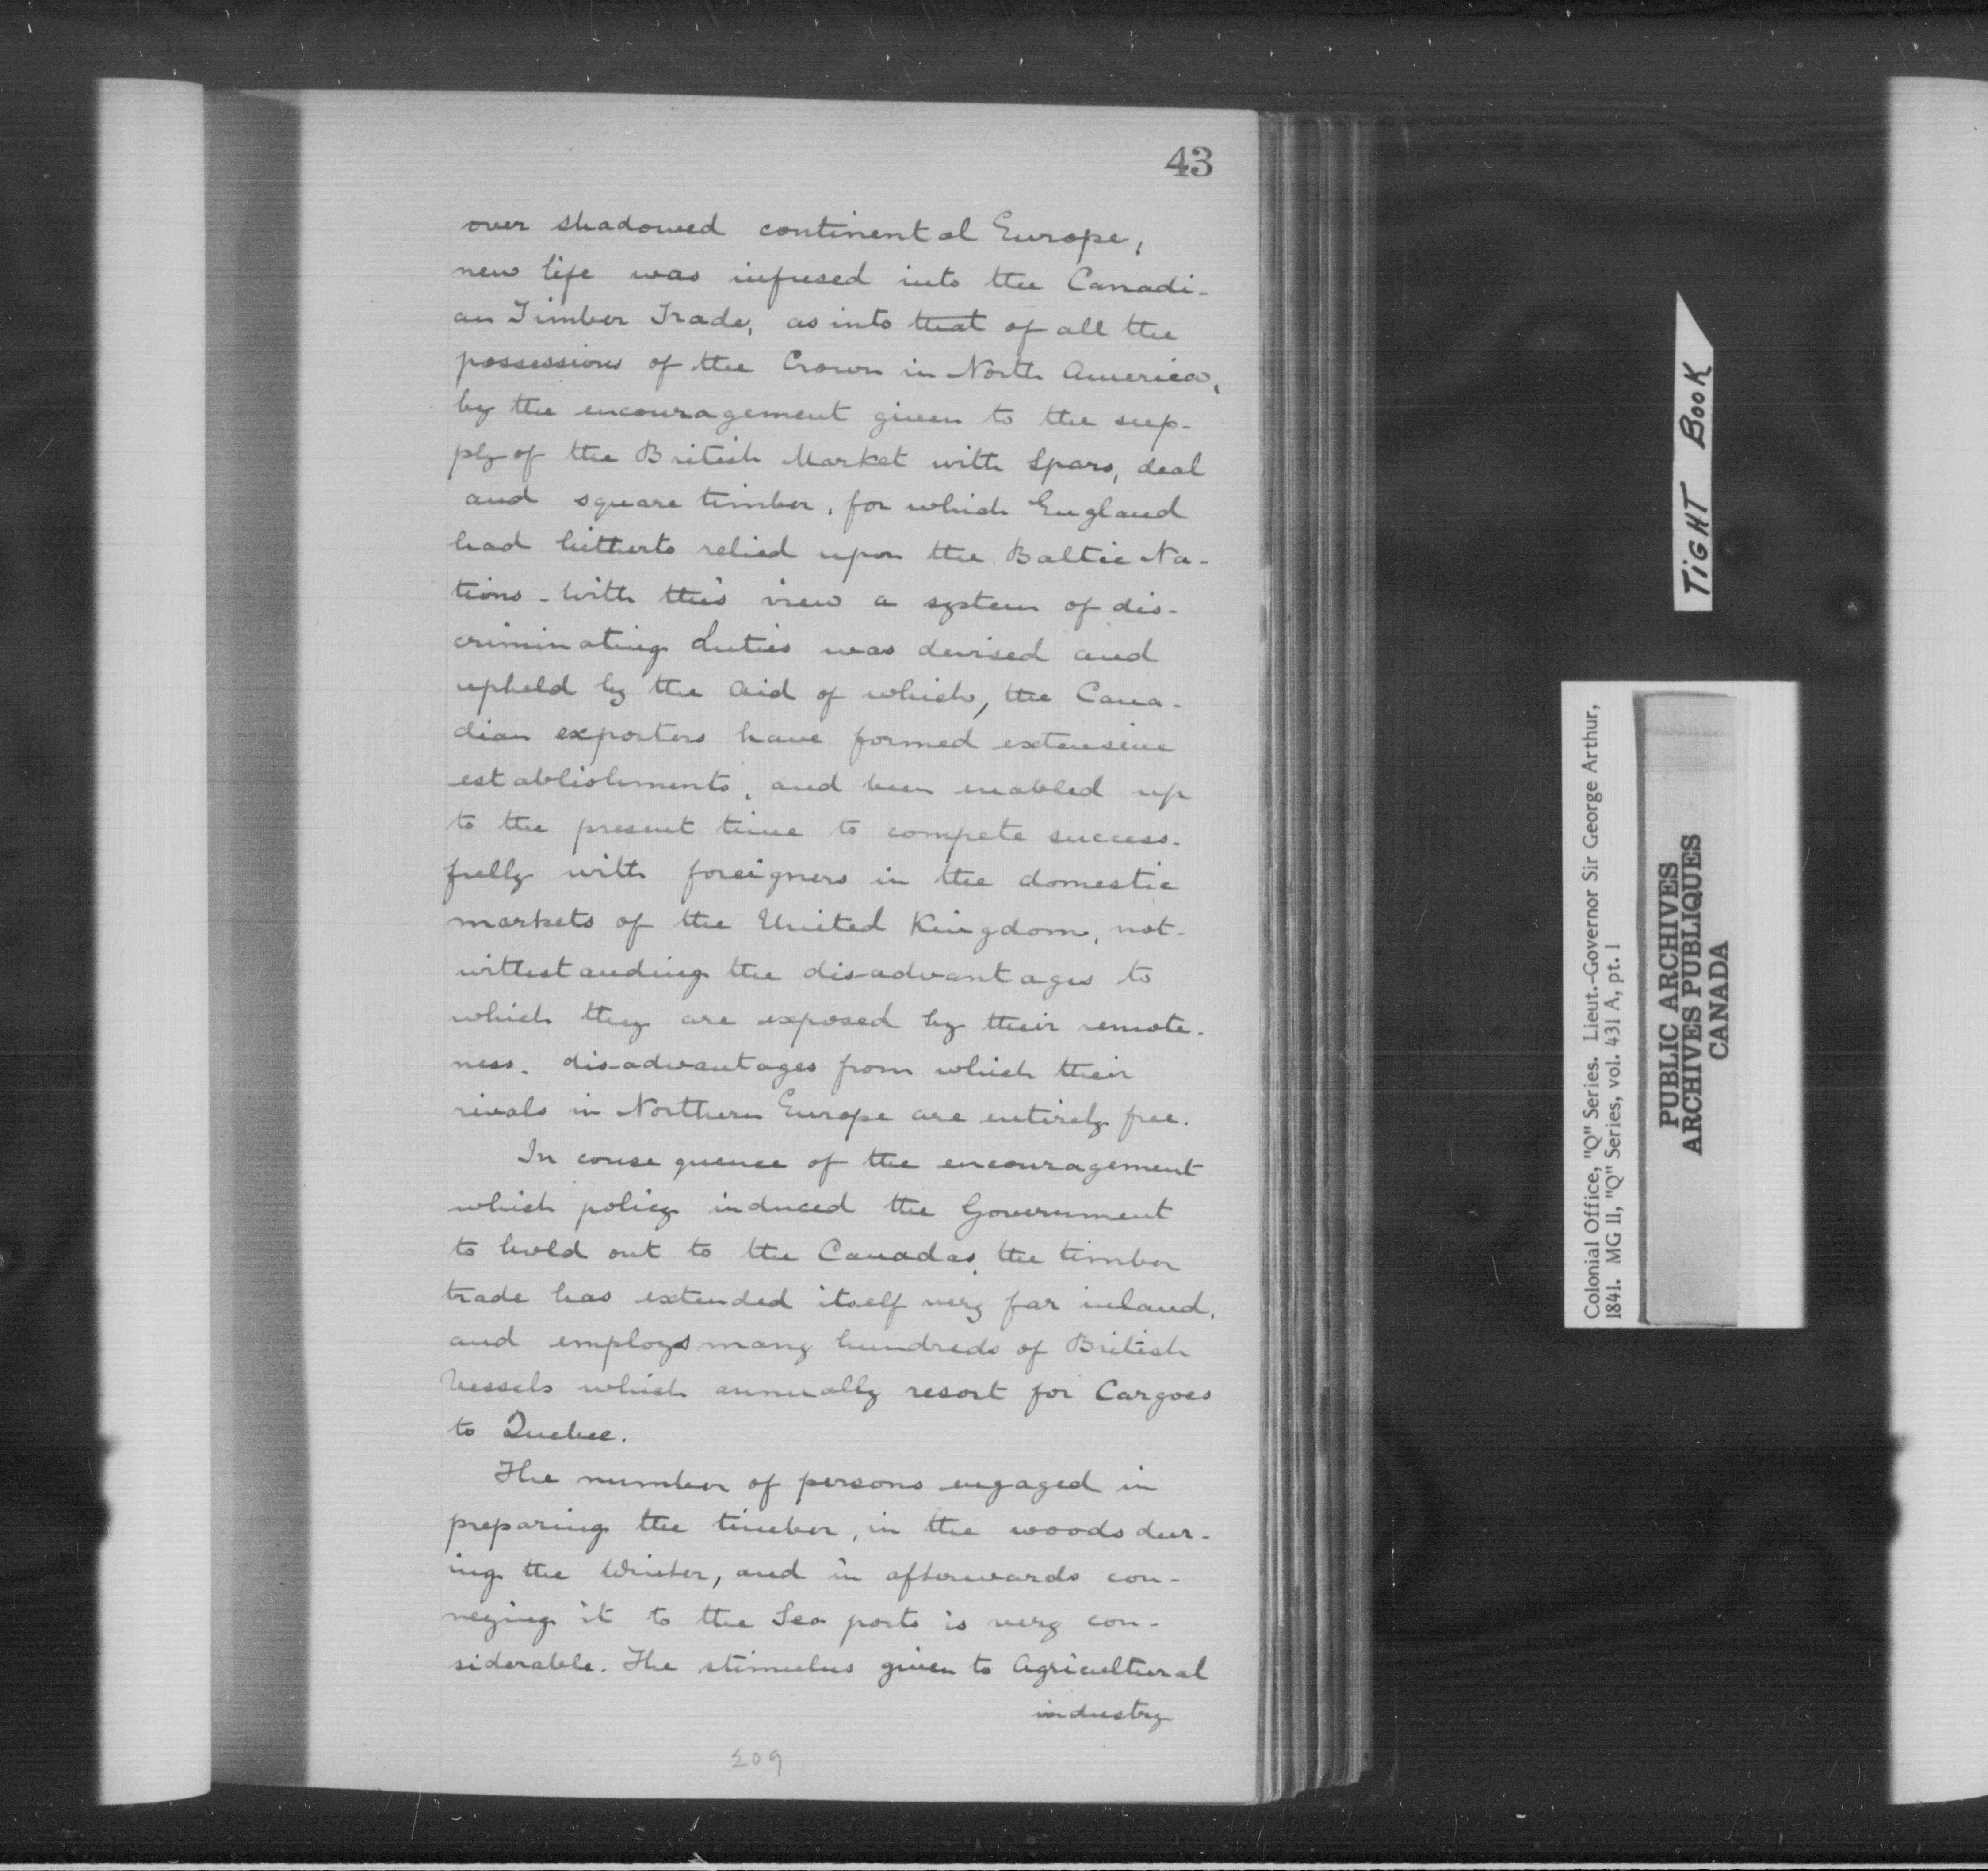 43
over shadowed continental Europe,
new life was infused into the Canadi-
an Timber Trade, as into that of all the
possessions of the Crown in North America,
by the encouragement given to the sup-
ply of the British Market with Spars, deal
and square timber, for which England
had hitherto relied upon the Baltic Na-
tions - With this view a system of dis-
criminating duties was devised and
upheld by the aid of which, the Cana-
dian exporters have formed extensive
establishments, and been enabled up
to the present time to compete success-
fully with foreigners in the domestic
markets of the United Kingdom, not-
withstanding the dis-advantages to
which they are exposed by their remote-
ness. dis-advantages from which their
rivals in Northern Europe are entirely free.
In consequence of the encouragement
which policy induced the Government
to hold out to the Canadas, the timber
trade has extended itself very far inland,
and employs many hundreds of British
Vessels which annually resort for Cargoes
to Quebec.
The number of persons engaged in
preparing the timber, in the woods dur-
ing the Winter, and in afterwards con-
veying it to the Sea ports is very con-
siderable. The stimulus given to Agricultural
industry
209
TIGHT BOOK
Colonial Office, "Q" Series. Lieut.-Governor Sir George Arthur,
1841. MG 11, "Q" Series, vol. 431 A, pt. 1
PUBLIC ARCHIVES
ARCHIVES PUBLIQUES
CANADA